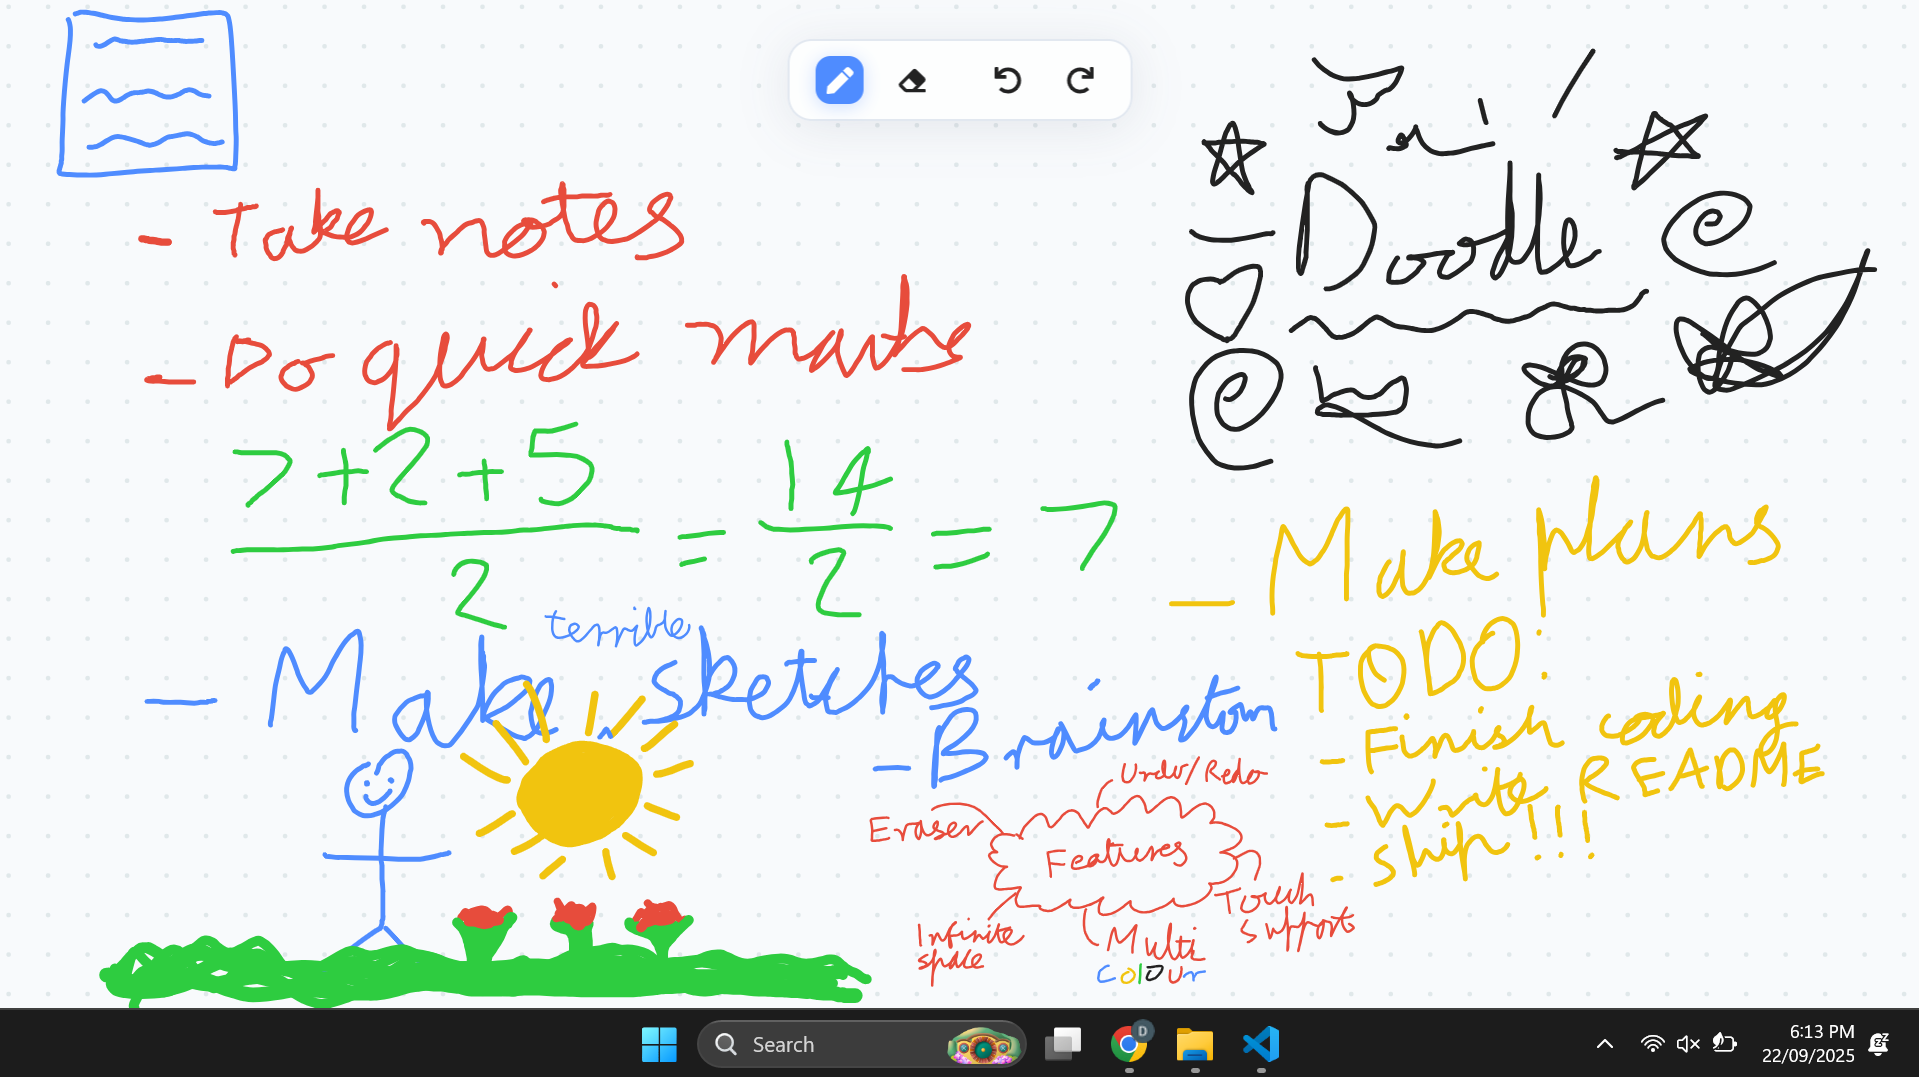 - Take notes
- Do quick maths
7+2+5
2
=
14
2
= 7
- Make terrible sketches
Doodle
- Make plans
TODO:
- Finish coding
- Write README
- Ship!!!
- Brainstorm
Undo/Redo
Eraser
Features
Touch
support
Infinite
space
Multi
Colour
Search
D
6:13 PM
22/09/2025